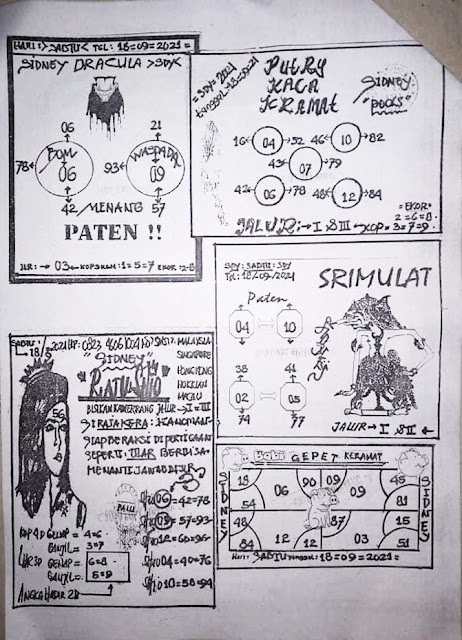 HARI:> SABTU < TGL: 18=09=2021=
SIDNEY DRACULA > SDY<
06
21
78
BOM
06
93
WASPADA
09
42
MENANG
57
PATEN !!
03
KOP
1=5=7
EKOR
=SDY= 2021
PUTRY
KACA
KRAMAT
SIDNEY
"POOLS"
16
04
52
46
10
82
43
07
79
42
06
78
46
12
84
=EKOR=
2=6=8
JALUR:→ I & III
KOP= 3=7=9
SDY: SABTU: SDY
TGL: 18/=09/2021
SRIMULAT
Paten
04
10
38
41
02
05
74
77
JALUR→ I & II
SABTU:
18/9
2021 HP: 0823
MALAYSIA
SINGAPORE
HONGKONG
HOKLAN
MACAU
"SIDNEY"
"RATU SHIO"
56
JALUR→ I = III
SI RAJA KERA: HANOMAN
SIAP BERAKSI DI PERTIGAAN
SEPERTI: ULAR BERBISA
PALU
06=42=78
09=57=93
12=60=96
04=40=76
10=58=94
KOP 4D GENAP = 4=6
GANJIL= 3=7
GENAP = 6=8
GANJIL= 5=9
ANGKA HADIR 2D
Babi
GEPET KERAMAT
SIDNEY
18
54
06
90
09
09
45
81
SIDNEY
48
84
12
87
03
15
51
HARI: SABTU
18=09=2021=